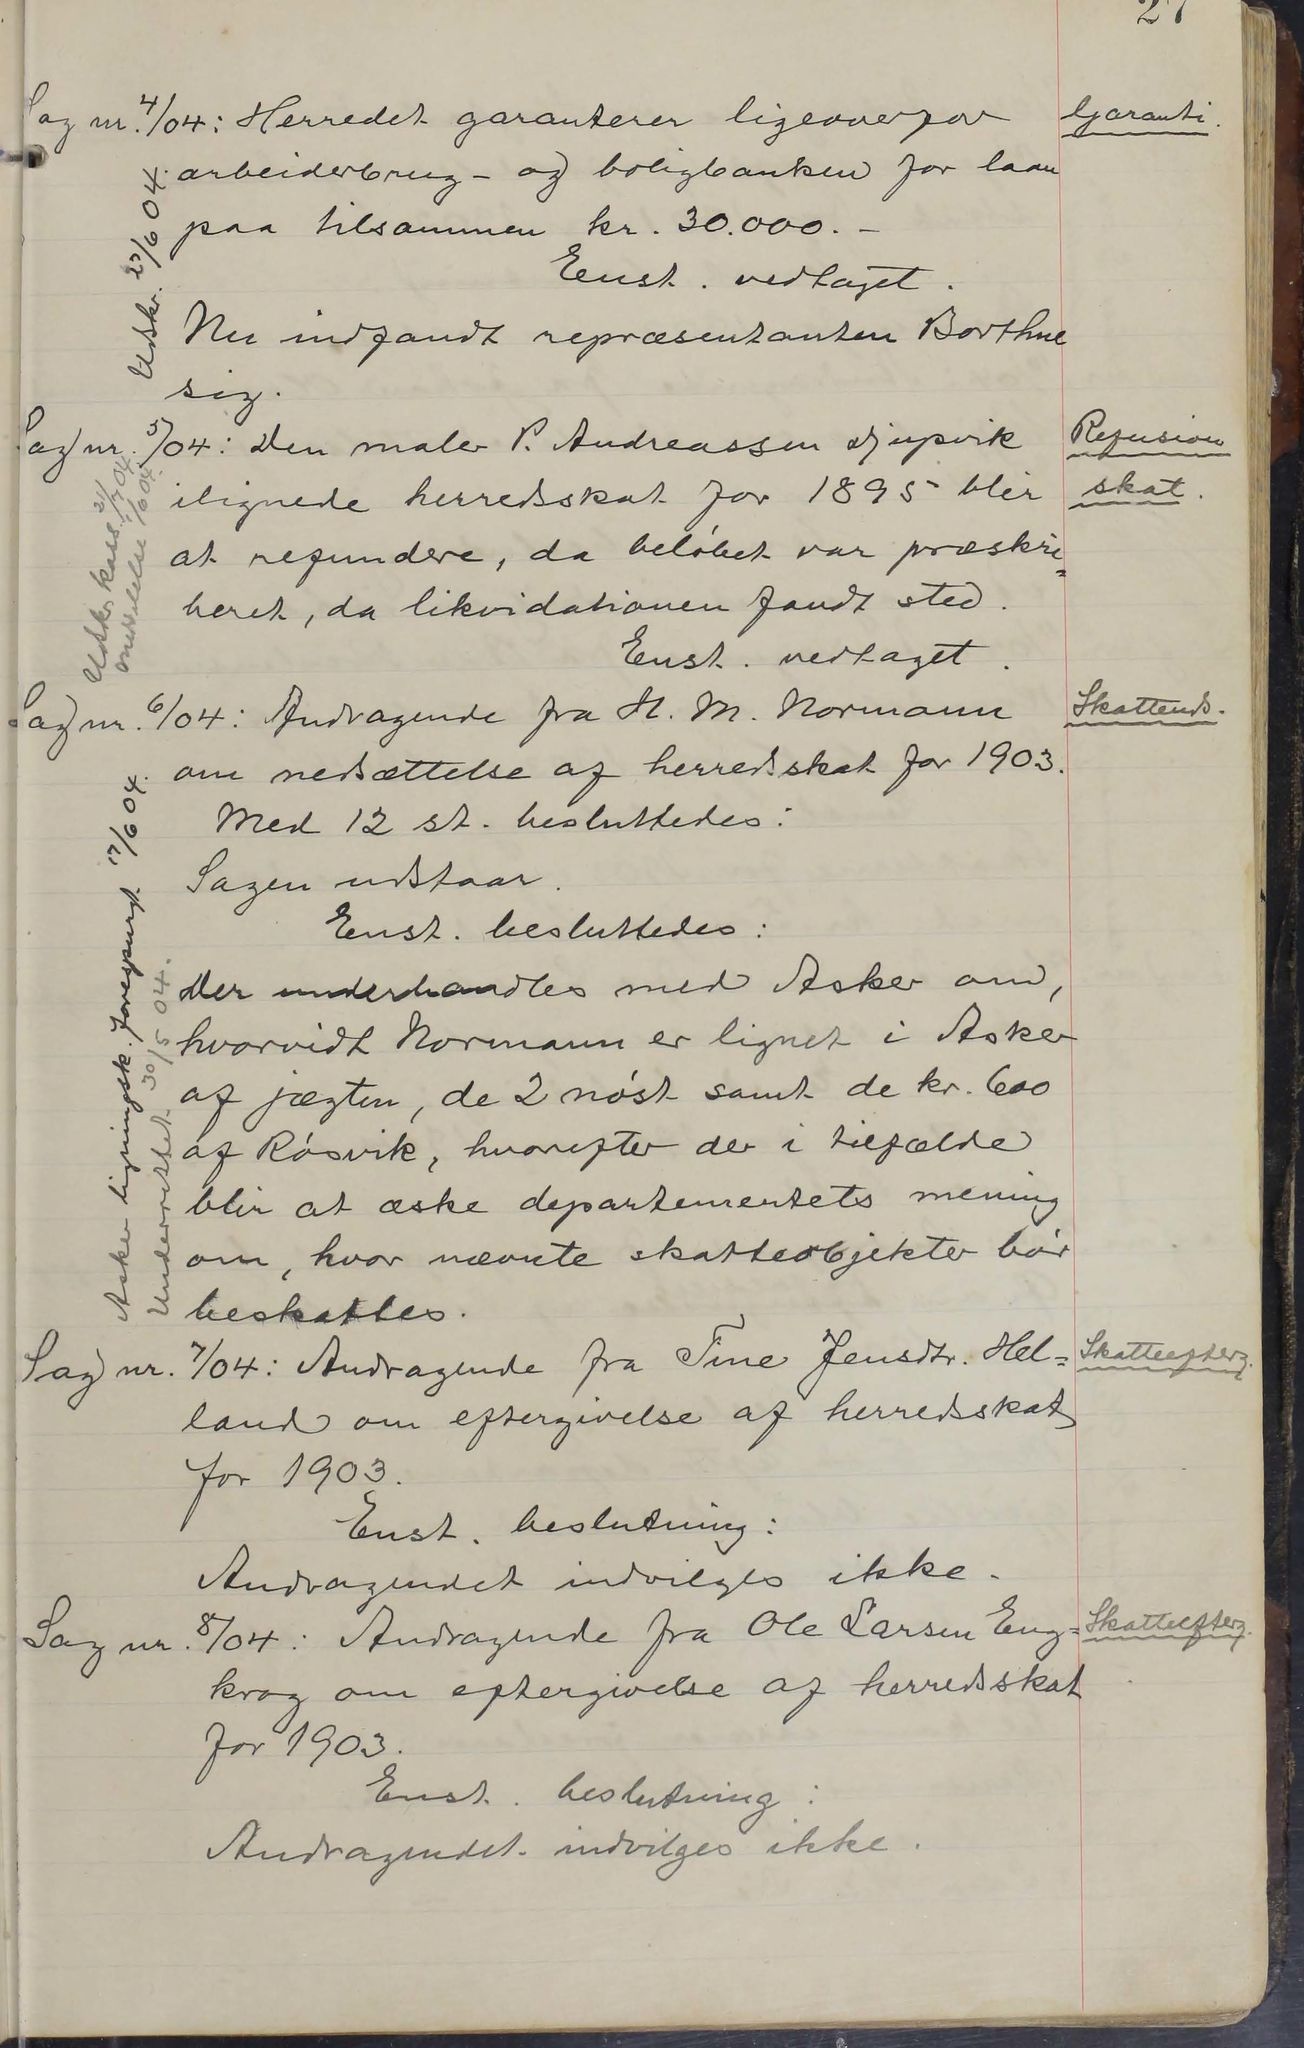 27
Sag nr. 4/04: Herredet garanterer ligeoverfor
Garanti.
arbeiderbrug- og boligbanken for laan
paa tilsammen kr. 30.000.-
Enst. vedtaget.
Udskr. 27/6 04.
Nu indfandt repræsentanten Borthne
sig.
Sag nr. 5/04: Den maler P. Andreassen Djupvik
Refusion
ilignede herredsskat for 1895 blir
skat.
at refundere, da beløbet var præskri=
beret, da likvidationen fandt sted.
Enst. vedtaget.
Udskr. kass. 21/7 04
meddelelse 1/6 04.
Sag nr. 6/04: Andragende fra H. M. Normann
Skattends.
om nedsættelse af herredsskat for 1903.
Med 12 st. besluttedes:
Sagen udstaar.
Enst. besluttedes:
Der underhandles med Asker om,
hvorvidt Normann er lignet i Asker
af jægten, de 2 nøst samt de kr. 600
af Røsvik, hvorefter der i tilfælde
blir at æske departementets mening
om, hvor nævnte skatteobjekter bør
beskattes.
Asker ligningsk. forespurgt 17/6 04.
Underrettet 30/5 04.
Sag nr. 7/04: Andragende fra Tine Jensdtr. Hel=
Skatteefterg.
land om eftergivelse af herredsskat
for 1903.
Enst. beslutning:
Andragendet indvilges ikke.
Sag nr. 8/04: Andragende fra Ole Larsen Eng=
Skatteefterg.
krog om eftergivelse af herredsskat
for 1903.
Enst. beslutning:
Andragendet indvilges ikke.